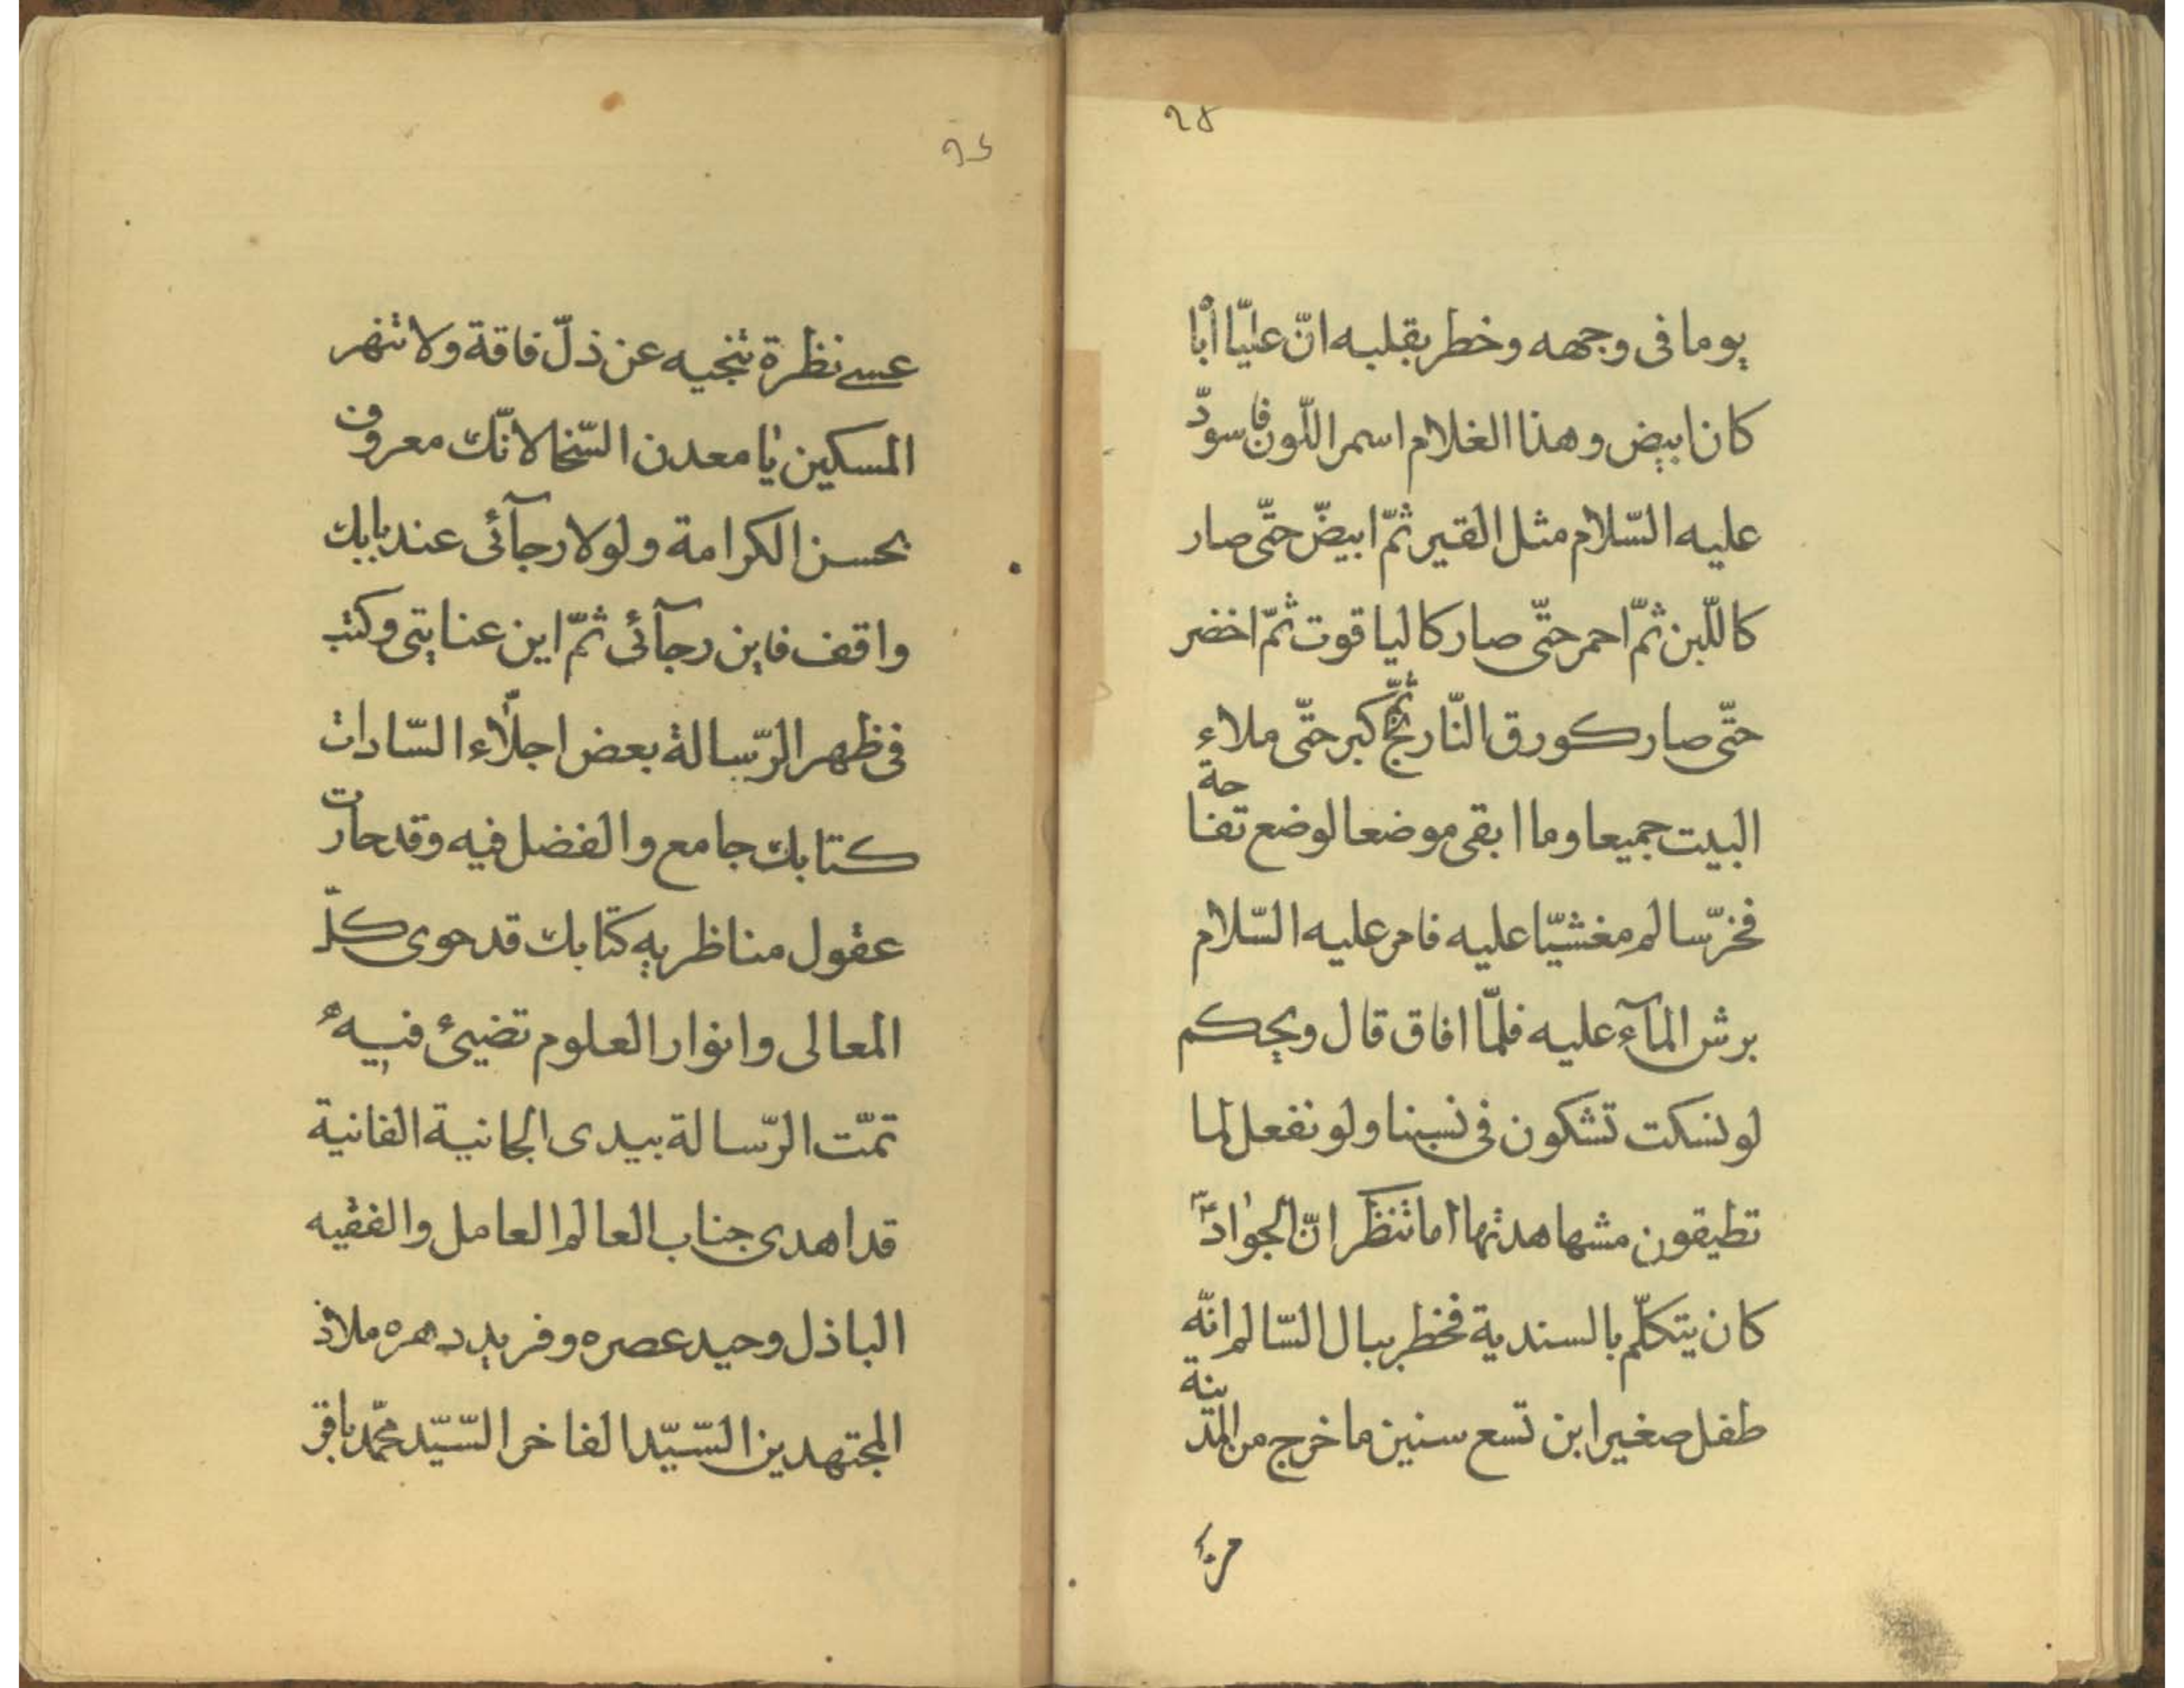 ٩٥
يوما فى وجهه وخطر بقلبه انّ عليّا أبا
كان ابيض وهذا الغلام اسمر اللّون فاسودّ
عليه السّلام مثل القير ثمّ ابيضّ حتّى صار
كاللّبن ثمّ احمر حتّى صار كالياقوت ثمّ اخضر
حتّى صار كورق النّارنج ثمّ كبر حتّى ملاء
البيت جميعا وما ابقى موضعا لوضع تفاحة
فخرّ سالم مغشيّا عليه فامر عليه السّلام
برش المآء عليه فلمّا افاق قال ويحكم
لو نسكت تشكون فى نسبنا ولو نفعل لما
تطيقون مشهاهدتها اما تنظر انّ الجواد
كان يتكلّم بالسندية فخطر ببال السّالم انّه
طفل صغير ابن تسع سنين ما خرج من المدينة
٩٤
عسى نظرة تنجيه عن ذلّ فاقة ولا تنهر
المسكين يا معدن السّخا لانّك معروف
بحسن الكرامة ولولا رجآئى عند بابك
واقف فاين رجآئى ثمّ اين عنايتى وكتب
فى ظهر الرّسالة بعض اجلّاء السّادات
كتابك جامع والفضل فيه وقد حارت
عقول مناظريه كتابك قد حوى كلّ
المعالى وانوار العلوم تضيئ فيه
تمّت الرّسالة بيدى الجانية الفانية
قد اهدى جناب العالم العامل والفقيه
الباذل وحيد عصره وفريد دهره ملاذ
المجتهدين السّيّد الفاخر السّيّد محمّد باقر